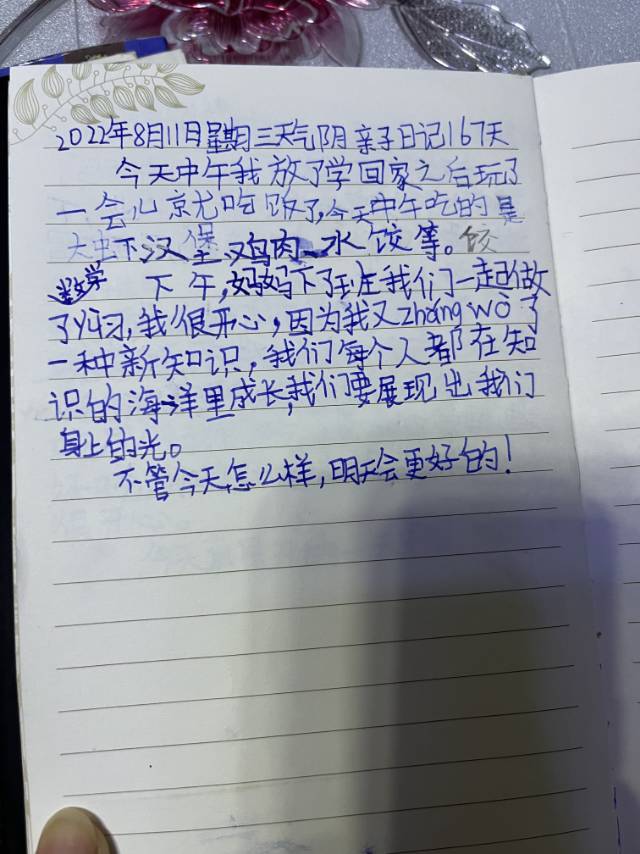 2022年8月11日星期三天气阴亲子日记167天
今天中午我放了学回家之后玩了
一会儿就吃饭了,今天中午吃的是
大虫下汉堡、鸡肉、水饺等。饺
数学 下午,妈妈下了班在我们一起做
了练习,我很开心,因为我又zhǎng wò了
一种新知识,我们每个人都在知
识的海洋里成长,我们要展现出我们
身上的光。
不管今天怎么样,明天会更好的!